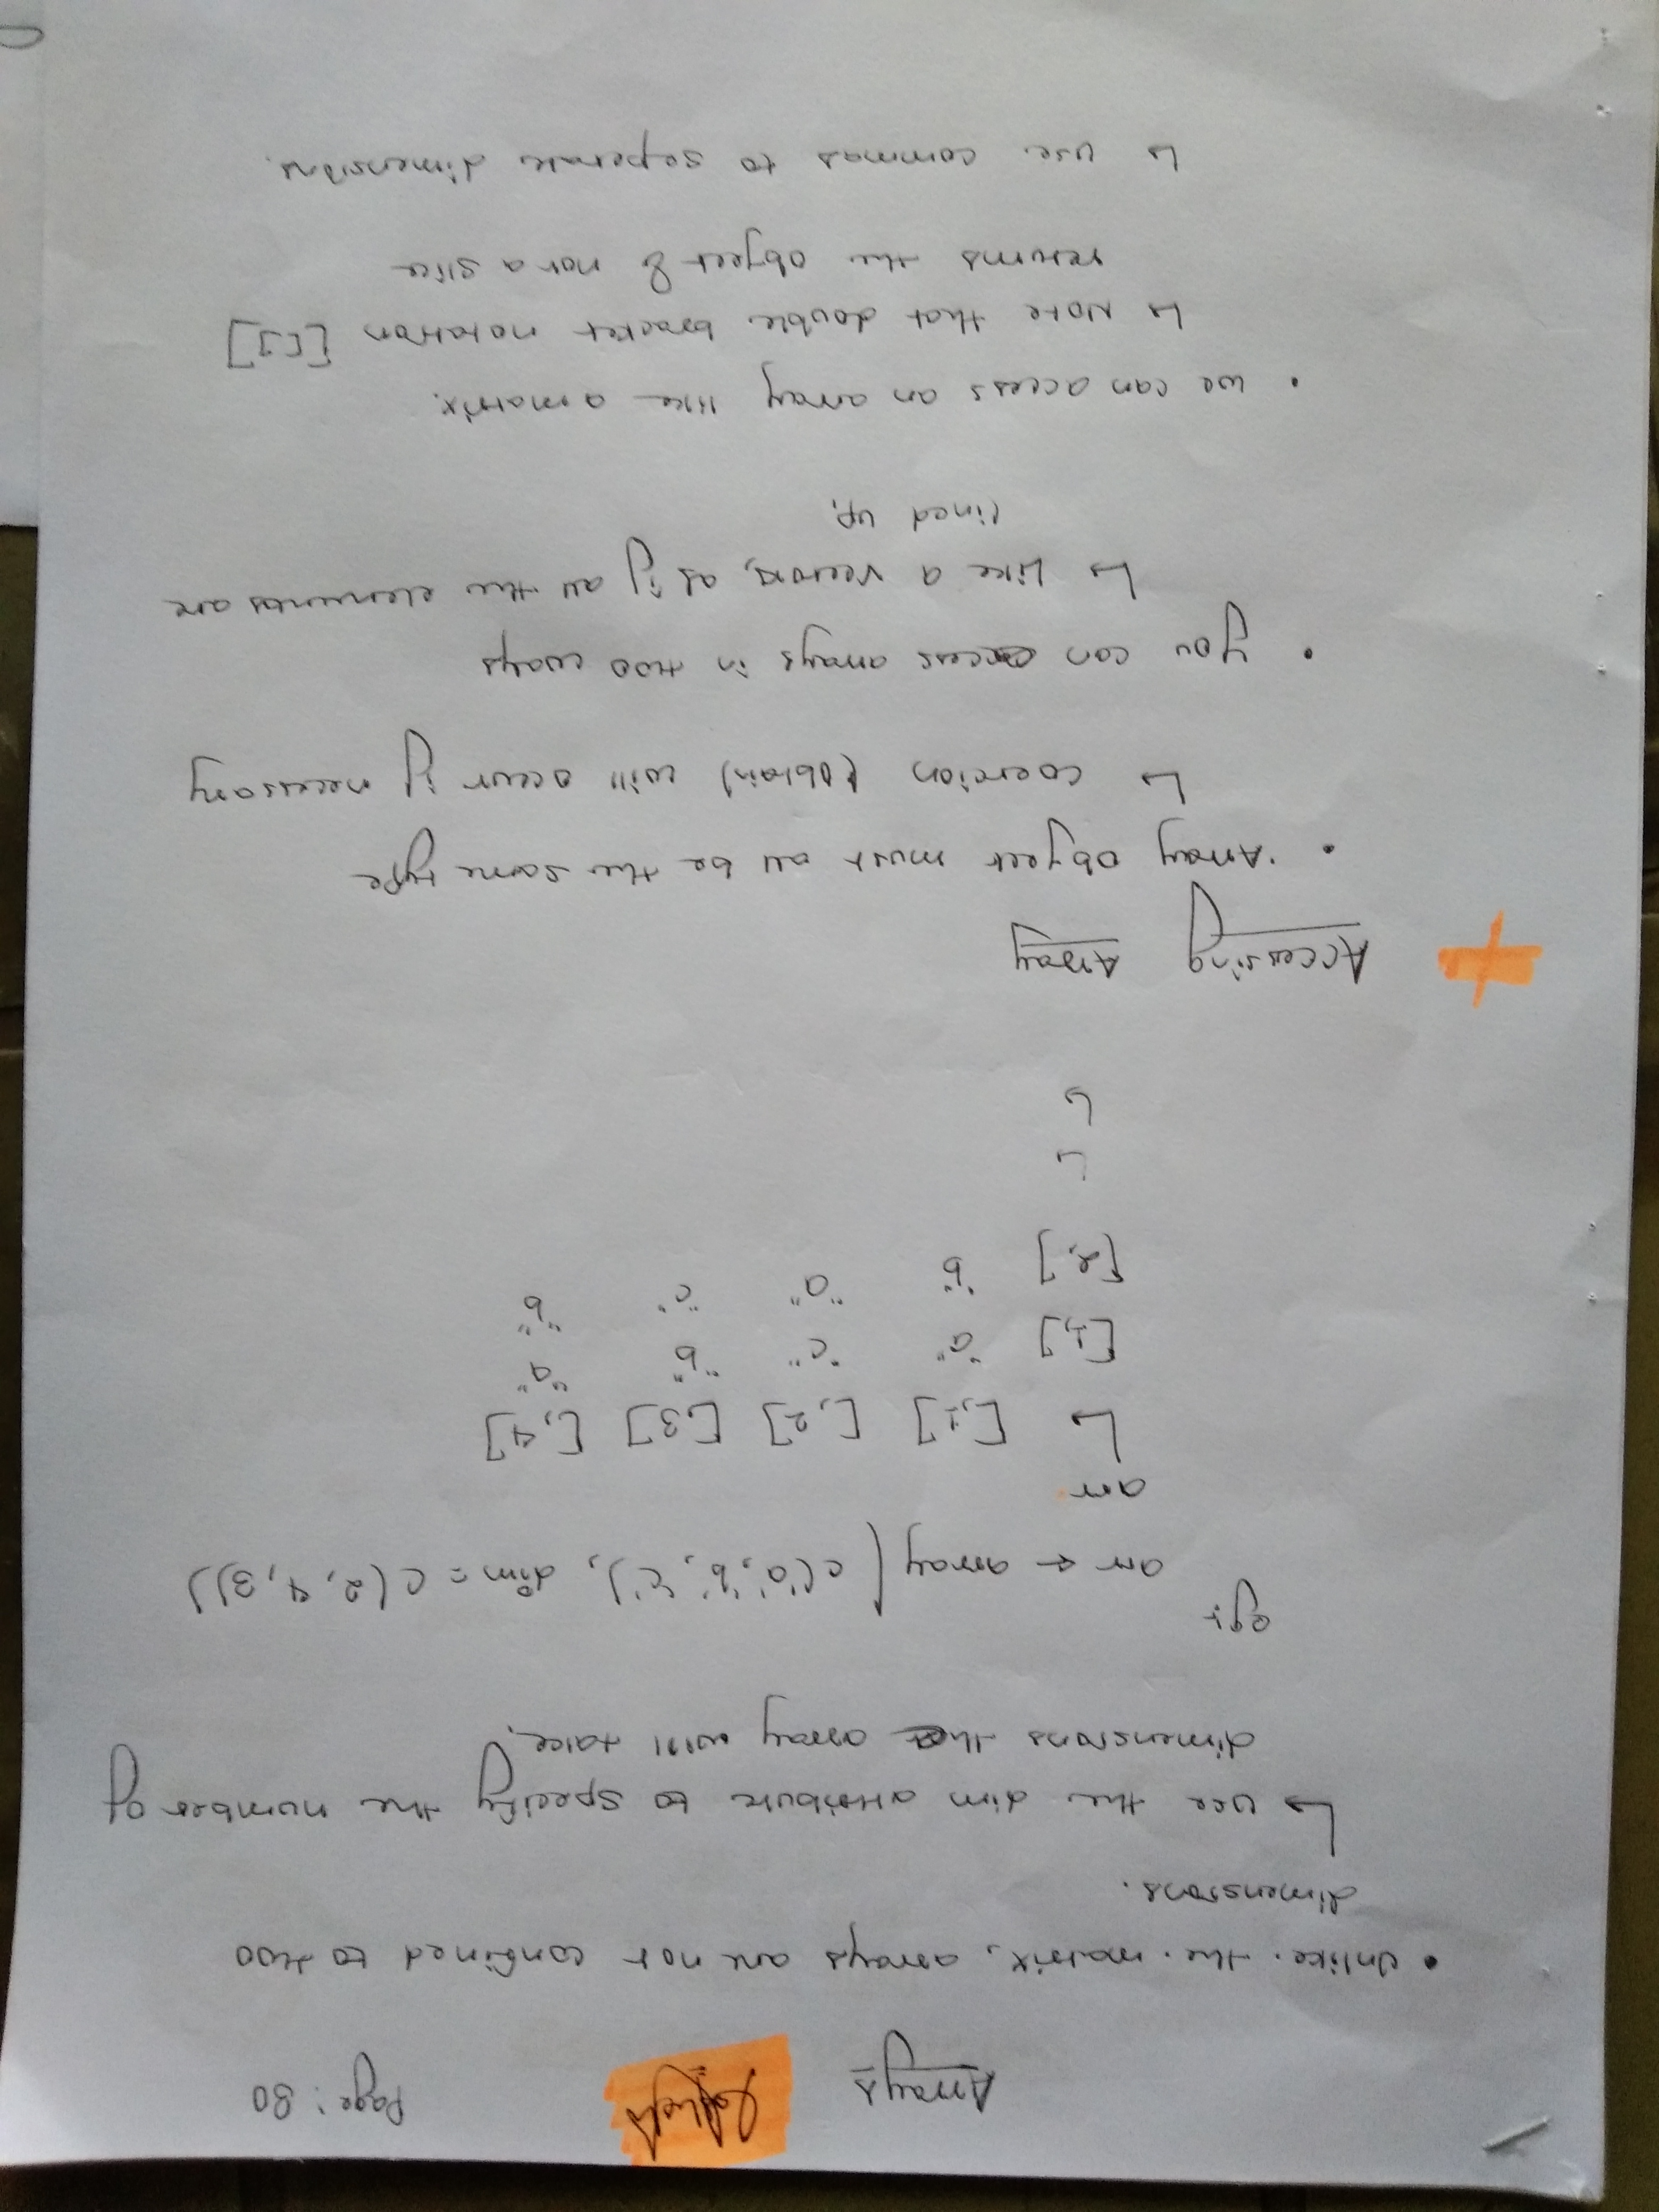 Arrays
Page: 30
• Unlike the matrix, arrays are not confined to two
dimensions.
↳ use the dim attribute to specify the number of
dimensions the array will take.
eg:
arr ← array(c('a', 'b', 'c'), dim = c(2, 4, 3))
arr
↳ [,1] [,2] [,3] [,4]
[1,] "a" "c" "b" "a"
[2,] "b" "a" "c" "b"
↳
↳
Accessing Array
• Array object must all be the same type
↳ coercion (obtain) will occur if necessary
• you can access arrays in two ways
↳ like a vector, as if all the elements are
lined up.
• we can access an array like a matrix.
↳ Note that double bracket notation [[]]
returns the object & not a slice
↳ use commas to seperate dimensions.